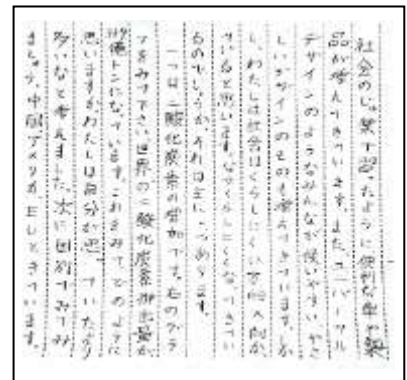 社会のじゅ業で習ったように便利な車や製
品が増えてきています。また、ユニバーサル
デザインのようなみんなが使いやすい、やさ
しいデザインのものも増えてきています。しか
し、わたしは社会はくらしにくい方向へ向か
っていると思います。なぜくらしにくくなってきてい
るのでしょうか。それは主に二つあります。
一つは二酸化炭素の増加です。右のグラ
フをみて下さい。世界の二酸化炭素排出量が
億トンになっています。これをみてどのように
思いますか。わたしは自分が思っていたより
多いなと考えました。次に国別でみてみ
ましょう。中国、アメリカ、ときています。